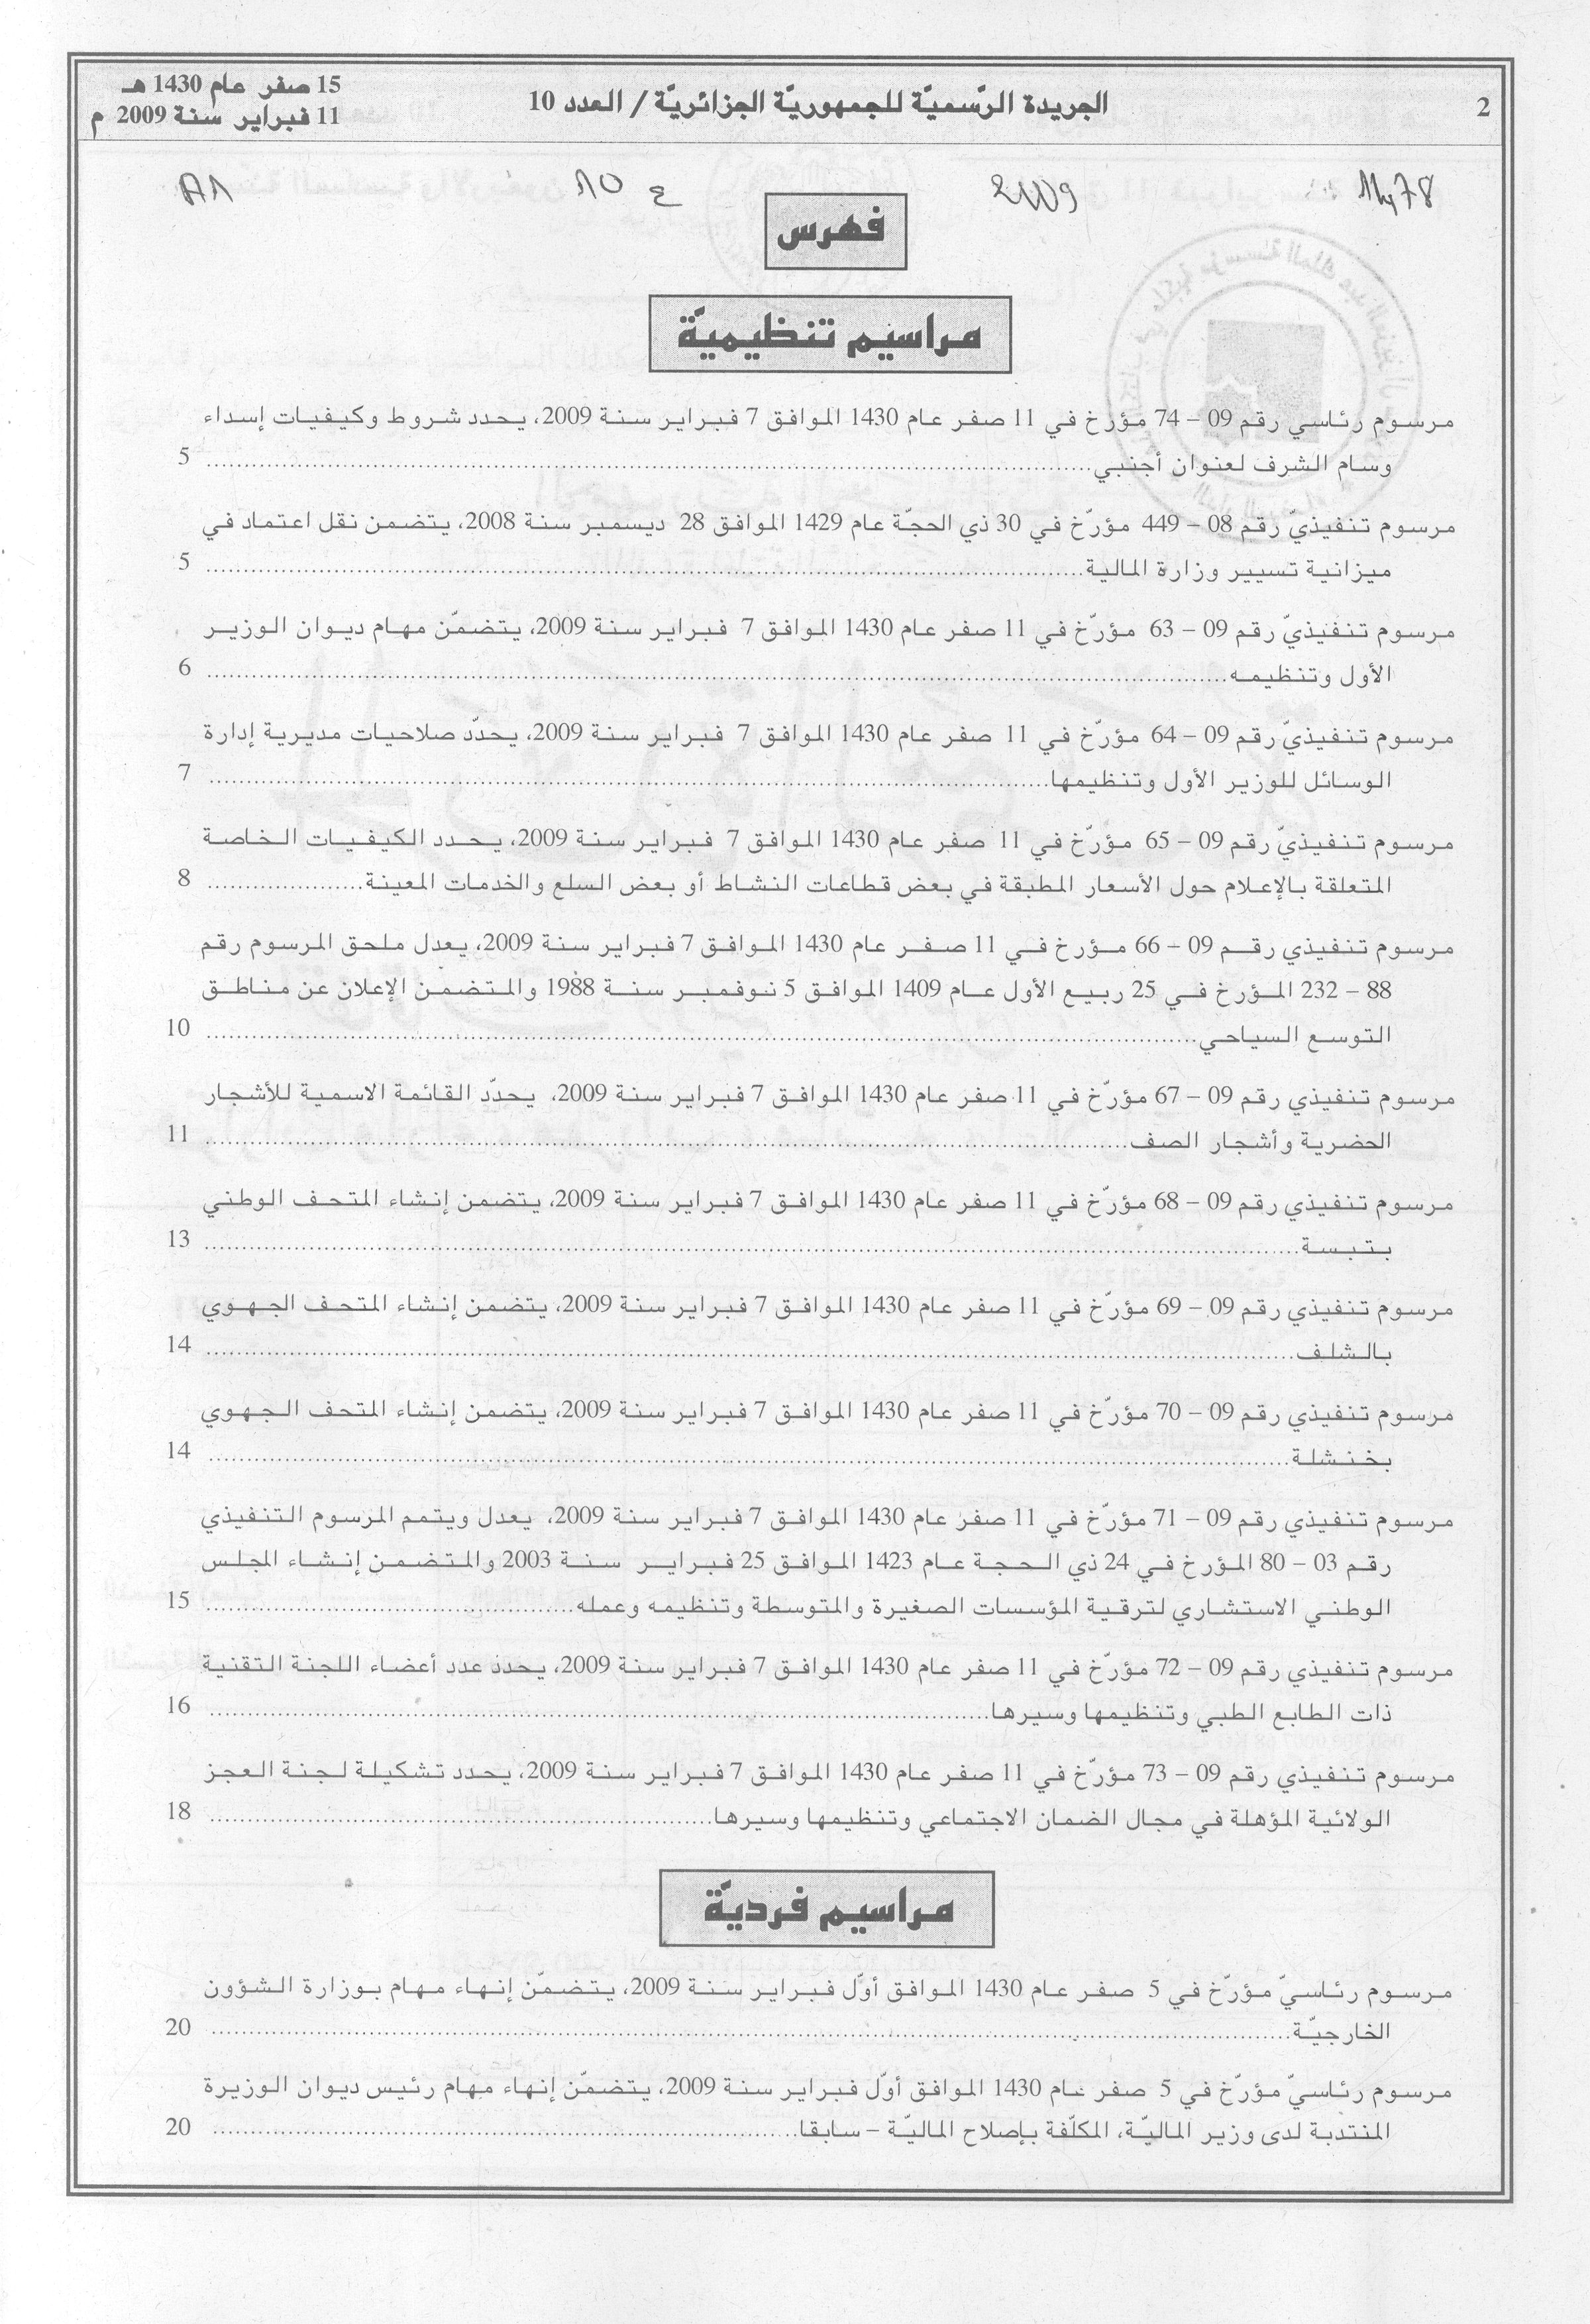 2
الجريدة الرّسميّة للجمهوريّة الجزائريّة / العدد 10
15 صفر عام 1430 هـ
11 فبراير سنة 2009 م
1478 2009 ع 10 A1
فهرس
مراسيم تنظيميّة
مرسوم رئاسي رقم 09 – 74 مؤرخ في 11 صفر عام 1430 الموافق 7 فبراير سنة 2009، يحدد شروط وكيفيات إسداء
وسام الشرف لعنوان أجنبي 5
مرسوم تنفيذيّ رقم 08 – 449 مؤرّخ في 30 ذي الحجّة عام 1429 الموافق 28 ديسمبر سنة 2008، يتضمن نقل اعتماد في
ميزانية تسيير وزارة المالية 5
مرسوم تنفيذيّ رقم 09 – 63 مؤرّخ في 11 صفر عام 1430 الموافق 7 فبراير سنة 2009، يتضمّن مهام ديوان الوزير
الأول وتنظيمه 6
مرسوم تنفيذيّ رقم 09 – 64 مؤرّخ في 11 صفر عام 1430 الموافق 7 فبراير سنة 2009، يحدّد صلاحيات مديرية إدارة
الوسائل للوزير الأول وتنظيمها 7
مرسوم تنفيذيّ رقم 09 – 65 مؤرّخ في 11 صفر عام 1430 الموافق 7 فبراير سنة 2009، يحدد الكيفيات الخاصة
المتعلقة بالإعلام حول الأسعار المطبقة في بعض قطاعات النشاط أو بعض السلع والخدمات المعينة 8
مرسوم تنفيذي رقم 09 – 66 مؤرخ في 11 صفر عام 1430 الموافق 7 فبراير سنة 2009، يعدل ملحق المرسوم رقم
88 – 232 المؤرخ في 25 ربيع الأول عام 1409 الموافق 5 نوفمبر سنة 1988 والمتضمن الإعلان عن مناطق
التوسع السياحي 10
مرسوم تنفيذي رقم 09 – 67 مؤرّخ في 11 صفر عام 1430 الموافق 7 فبراير سنة 2009، يحدّد القائمة الاسمية للأشجار
الحضرية وأشجار الصف 11
مرسوم تنفيذي رقم 09 – 68 مؤرّخ في 11 صفر عام 1430 الموافق 7 فبراير سنة 2009، يتضمن إنشاء المتحف الوطني
بتبسة 13
مرسوم تنفيذي رقم 09 – 69 مؤرّخ في 11 صفر عام 1430 الموافق 7 فبراير سنة 2009، يتضمن إنشاء المتحف الجهوي
بالشلف 14
مرسوم تنفيذي رقم 09 – 70 مؤرّخ في 11 صفر عام 1430 الموافق 7 فبراير سنة 2009، يتضمن إنشاء المتحف الجهوي
بخنشلة 14
مرسوم تنفيذي رقم 09 – 71 مؤرّخ في 11 صفر عام 1430 الموافق 7 فبراير سنة 2009، يعدل ويتمم المرسوم التنفيذي
رقم 03 – 80 المؤرخ في 24 ذي الحجة عام 1423 الموافق 25 فبراير سنة 2003 والمتضمن إنشاء المجلس
الوطني الاستشاري لترقية المؤسسات الصغيرة والمتوسطة وتنظيمه وعمله 15
مرسوم تنفيذي رقم 09 – 72 مؤرّخ في 11 صفر عام 1430 الموافق 7 فبراير سنة 2009، يحدد عدد أعضاء اللجنة التقنية
ذات الطابع الطبي وتنظيمها وسيرها 16
مرسوم تنفيذي رقم 09 – 73 مؤرّخ في 11 صفر عام 1430 الموافق 7 فبراير سنة 2009، يحدد تشكيلة لجنة العجز
الولائية المؤهلة في مجال الضمان الاجتماعي وتنظيمها وسيرها 18
مراسيم فرديّة
مرسوم رئاسيّ مؤرّخ في 5 صفر عام 1430 الموافق أوّل فبراير سنة 2009، يتضمّن إنهاء مهام بوزارة الشؤون
الخارجيّة 20
مرسوم رئاسيّ مؤرّخ في 5 صفر عام 1430 الموافق أوّل فبراير سنة 2009، يتضمّن إنهاء مهام رئيس ديوان الوزيرة
المنتدبة لدى وزير الماليّة، المكلّفة بإصلاح الماليّة – سابقا 20